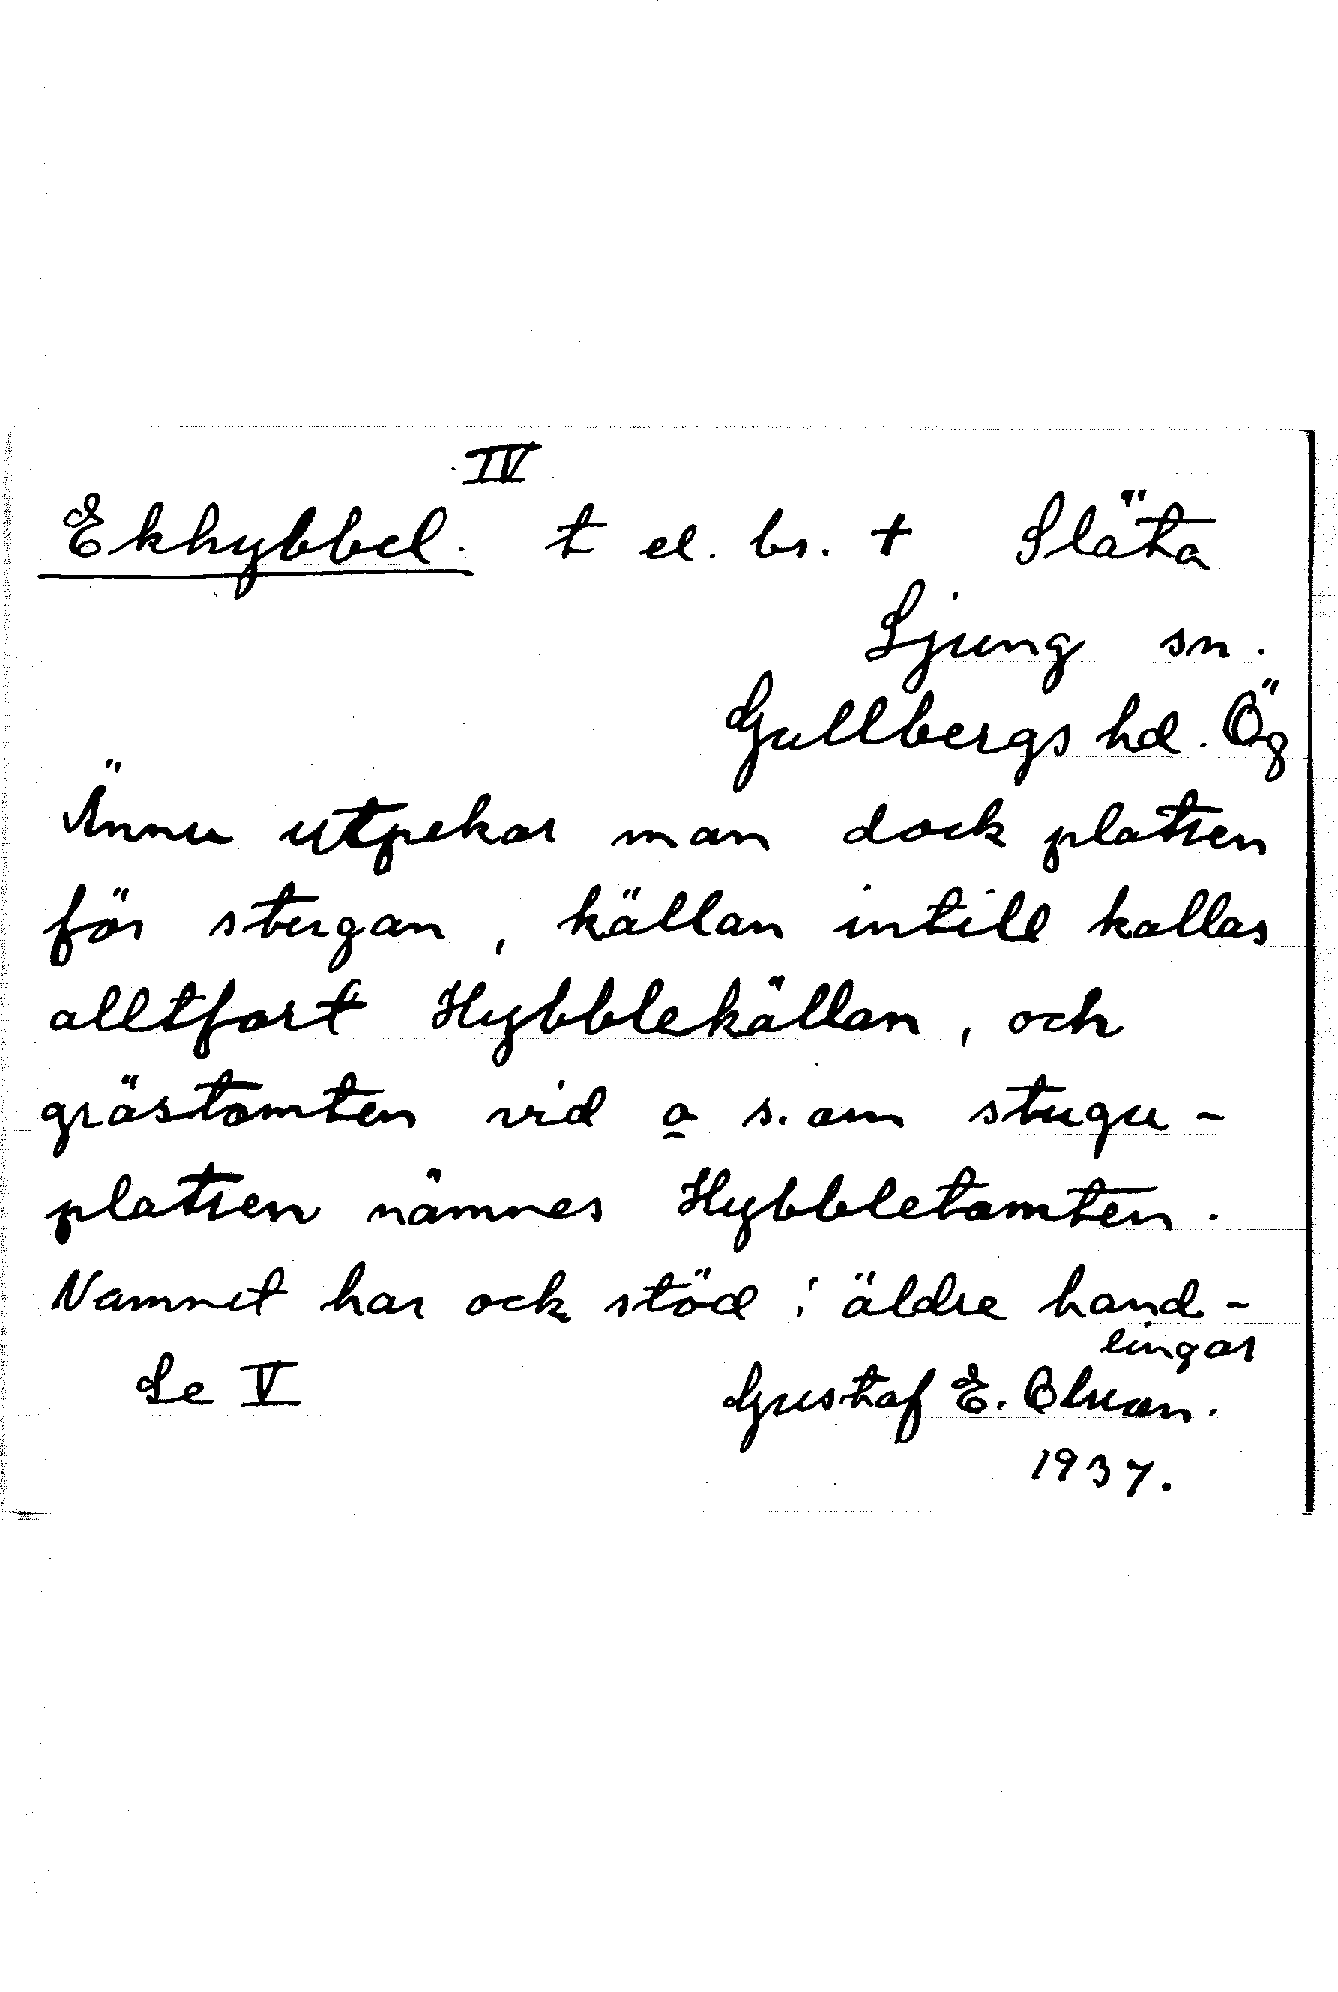 IV
Ekhybbel. t el. bs. + Släta
Ljung sn.
Gullbergs hd. Ög
Ännu utpekar man dock platsen
för stugan, källan intill kallas
alltfort Hybblekällan, och
grästomten vid o s. om stugu-
platsen nämnes Hybbletomten.
Namnet har ock stöd i äldre hand-
lingar
Se V Gustaf E. Olsson.
1937.